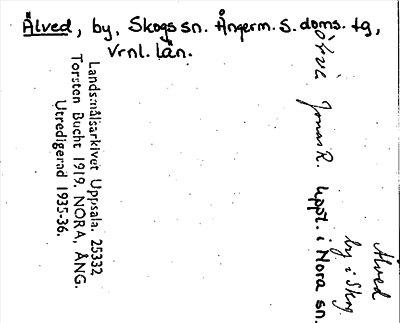 Älved, by, Skogs sn. Ångerm. S. doms. tg,
Vrnl. län.
Landsmålsarkivet Uppsala. 25332
Torsten Bucht 1919. NORA, ÅNG.
Utredigerad 1935-36.
Jonas R. uppt. i Nora sn.
Älved
by i Skog